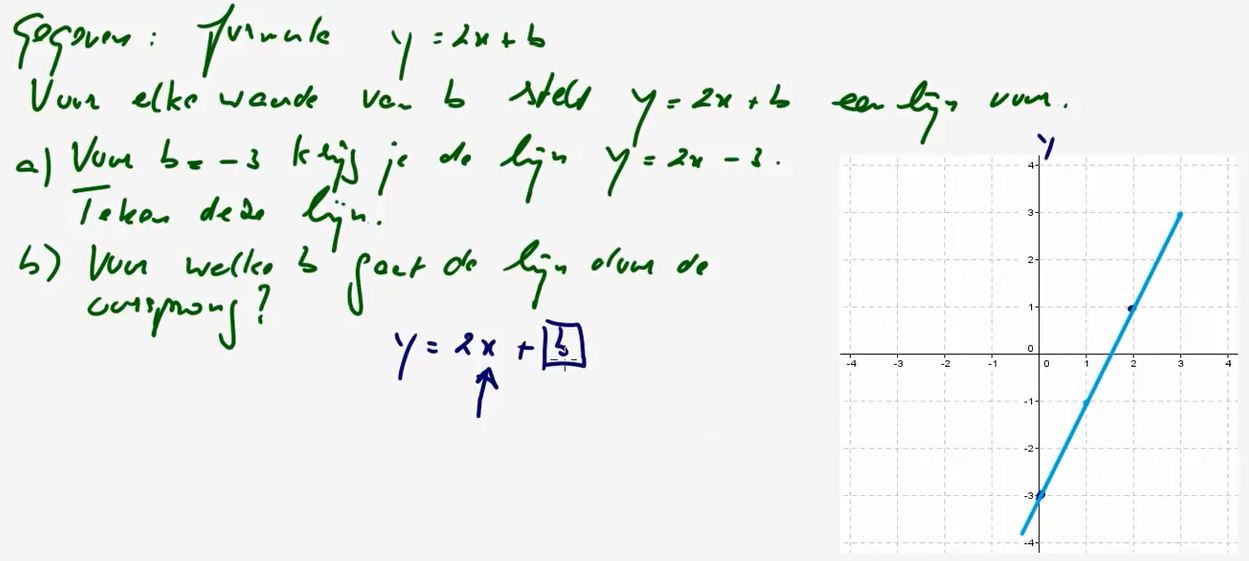 Gegeven: formule y = 2x + b
Voor elke waarde van b stelt y = 2x + b een lijn voor.
a) Voor b = -3 krijg je de lijn y = 2x - 3.
Teken deze lijn.
b) Voor welke b gaat de lijn door de
oorsprong?
y = 2x + b
y
4
3
2
1
0
-4 -3 -2 -1 0 1 2 3 4
-1
-2
-3
-4